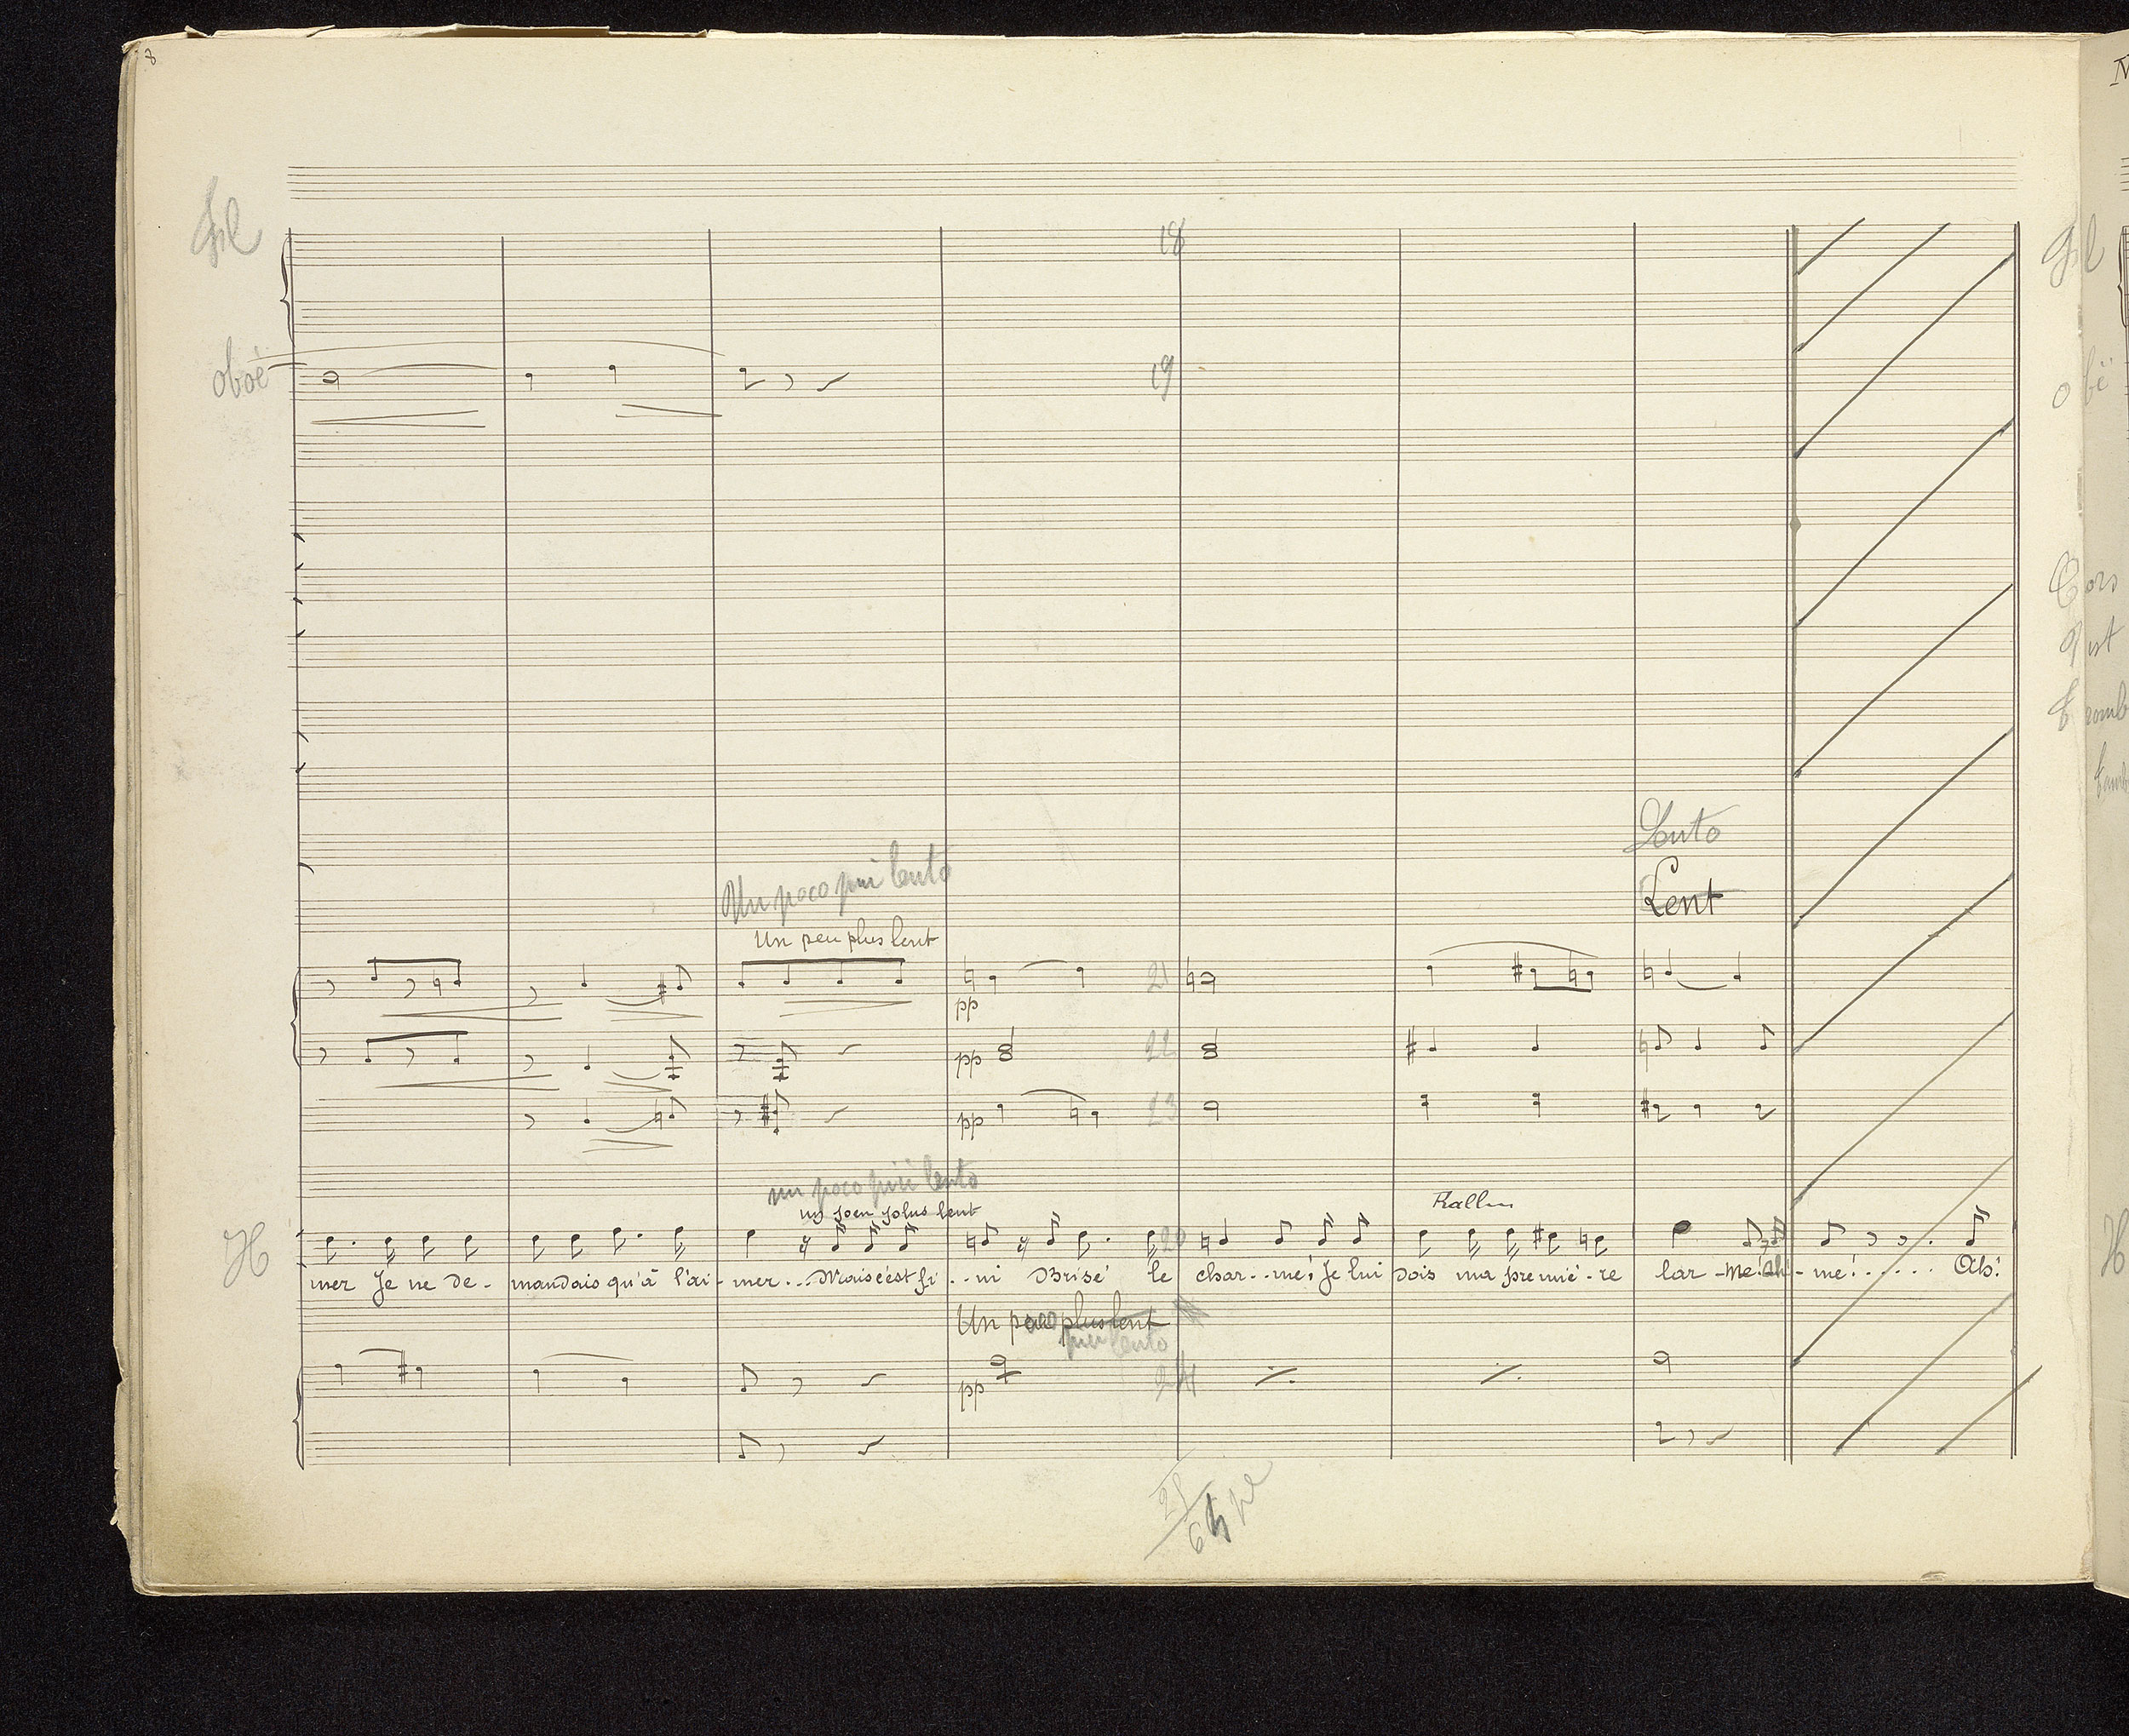 8
18
oboë
19
Lento
Lent
Un poco più lento
Un peu plus lent
21
pp
pp
22
pp
23
un poco più lento
un peu plus lent
Rall
H
20
mer Je ne de - mandais qu'à l'ai - mer... Mais c'est fi .. ni Brisé le char .. me! Je lui dois ma premiè - re lar - me! Ah! - me! ..... Ah!
Un poco plus lent
più lento
pp
24
Cors